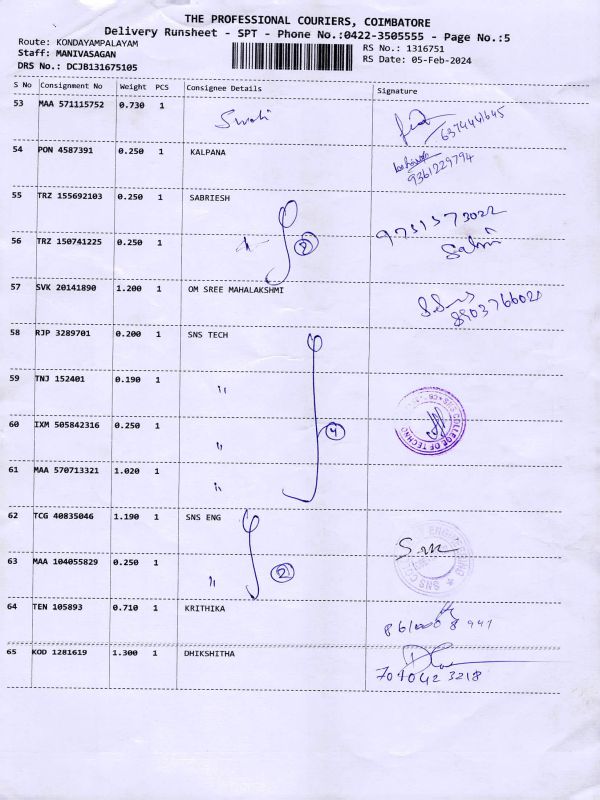 THE PROFESSIONAL COURIERS, COIMBATORE
Delivery Runsheet - SPT - Phone No.:0422-3505555 - Page No.:5
Route: KONDAYAMPALAYAM
Staff: MANIVASAGAN
DRS No.: DCJB131675105
RS No.: 1316751
RS Date: 05-Feb-2024
S No Consignment No Weight PCS Consignee Details Signature
53 MAA 571115752 0.730 1 Swati 6374461645
54 PON 4587391 0.250 1 KALPANA 9361229794
55 TRZ 155692103 0.250 1 SABRIESH 9751573022
56 TRZ 150741225 0.250 1 2
57 SVK 20141890 1.200 1 OM SREE MAHALAKSHMI
58 RJP 3289701 0.200 1 SNS TECH
59 TNJ 152401 0.190 1 "
60 IXM 505842316 0.250 1 " 4 SNS COLLEGE OF TECHNO
61 MAA 570713321 1.020 1 "
62 TCG 40835046 1.190 1 SNS ENG
63 MAA 104055829 0.250 1 " 2
64 TEN 105893 0.710 1 KRITHIKA
65 KOD 1281619 1.300 1 DHIKSHITHA